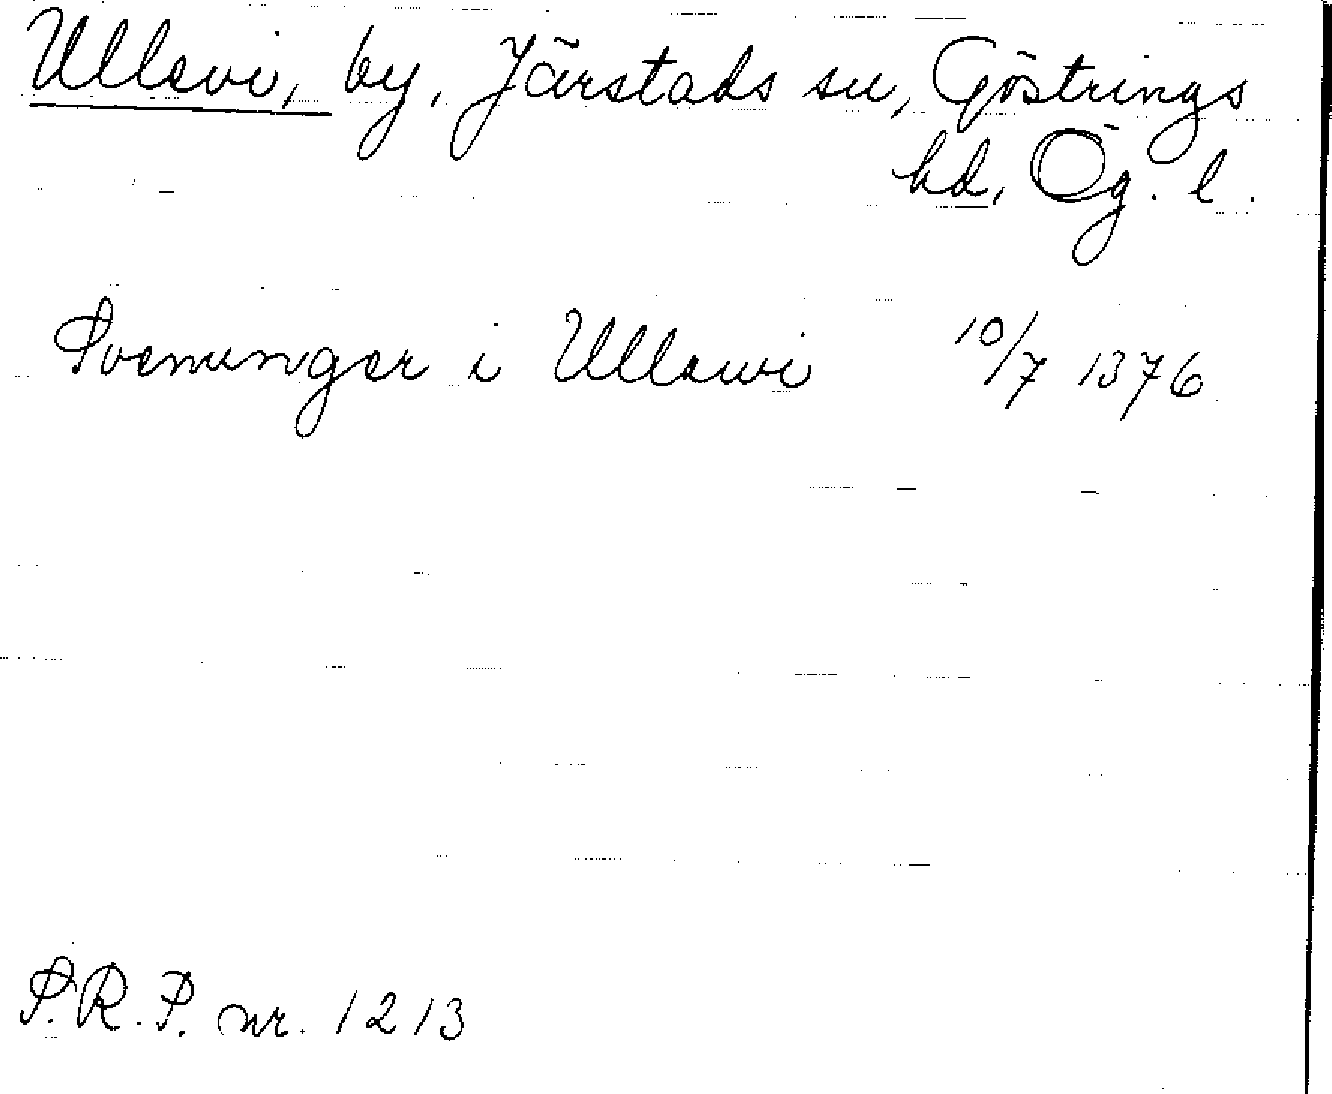 Ullevi, by, Järstads sn, Göstrings
hd, Ög. l.
Swenunger i Ullawi 10/7 1376
S.R.P. nr. 1213